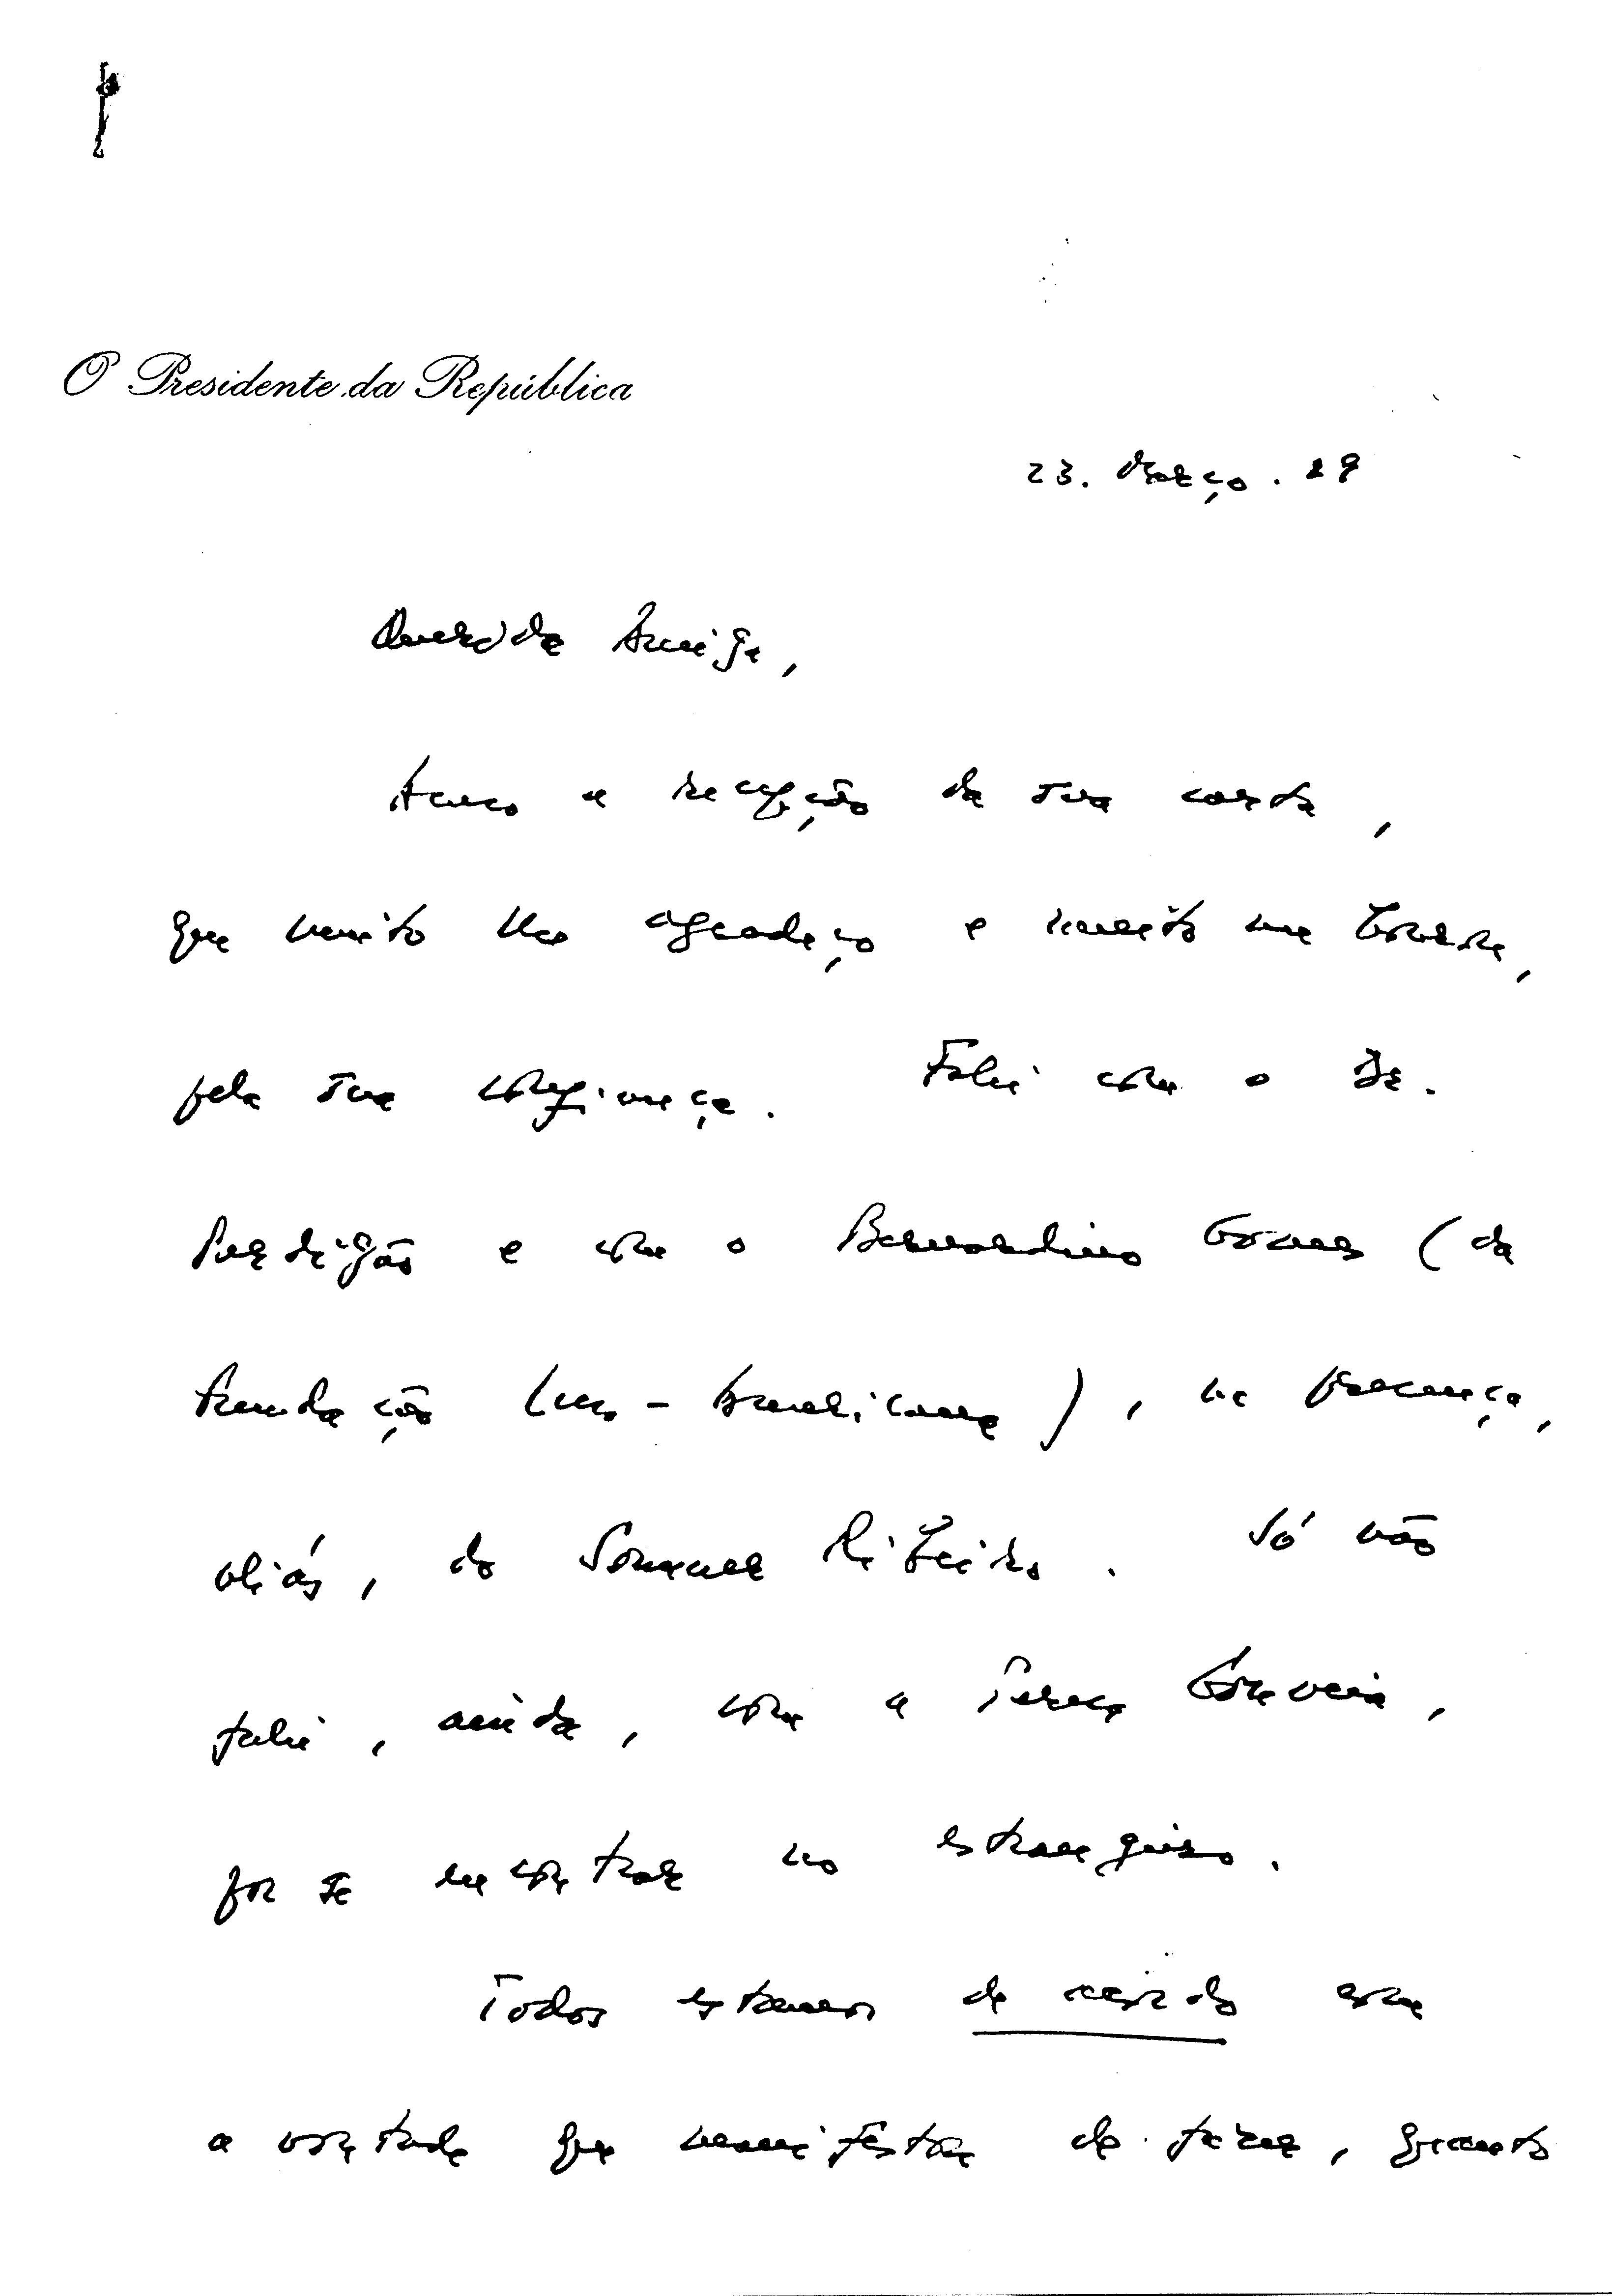 O Presidente da República
23. Março. 89
Querida Amiga,
Acuso a recepção da sua carta,
que muito lhe agradeço e muito me honra,
pela sua confiança. Falei com o Dr.
Perdigão e com o Bernardino Gomes (da
Fundação Luso-Americana), na presença,
aliás, do Sommer Ribeiro. Só não
falei, ainda, com a Teresa Gouveia,
por se encontrar no estrangeiro.
Todos estamos de acordo com
a vontade que manifestou de fazer, quanto